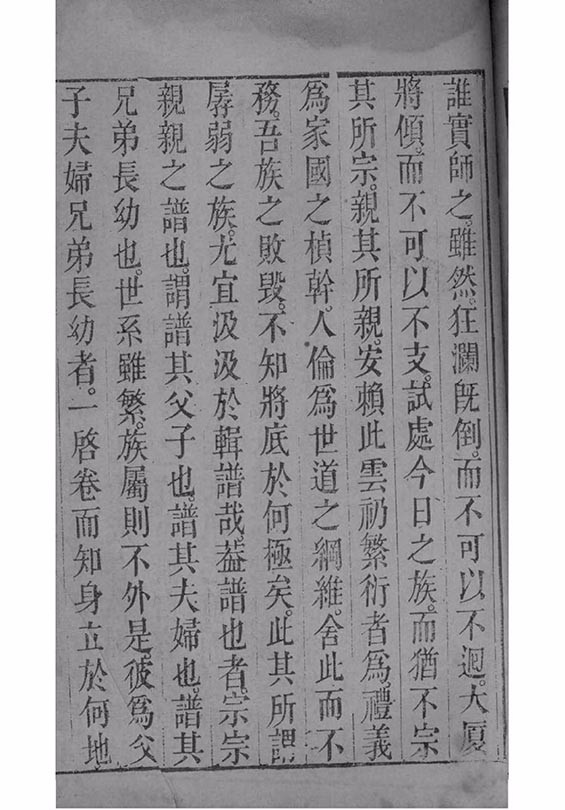 誰實師之。雖然。狂瀾既倒。而不可以不迴。大厦
將傾。而不可以不支。試處今日之族。而猶不宗
其所宗。親其所親。安賴此雲礽繁衍者為。禮義
為家國之楨幹。人倫為世道之綱維。舍此而不
務。吾族之敗毀。不知將底於何極矣。此其所謂
孱弱之族。尤宜汲汲於輯譜哉。葢譜也者。宗宗
親親之譜也。謂譜其父子也。譜其夫婦也。譜其
兄弟長幼也。世系雖繁。族屬則不外是。彼為父
子夫婦兄弟長幼者。一啓卷而知身立於何地